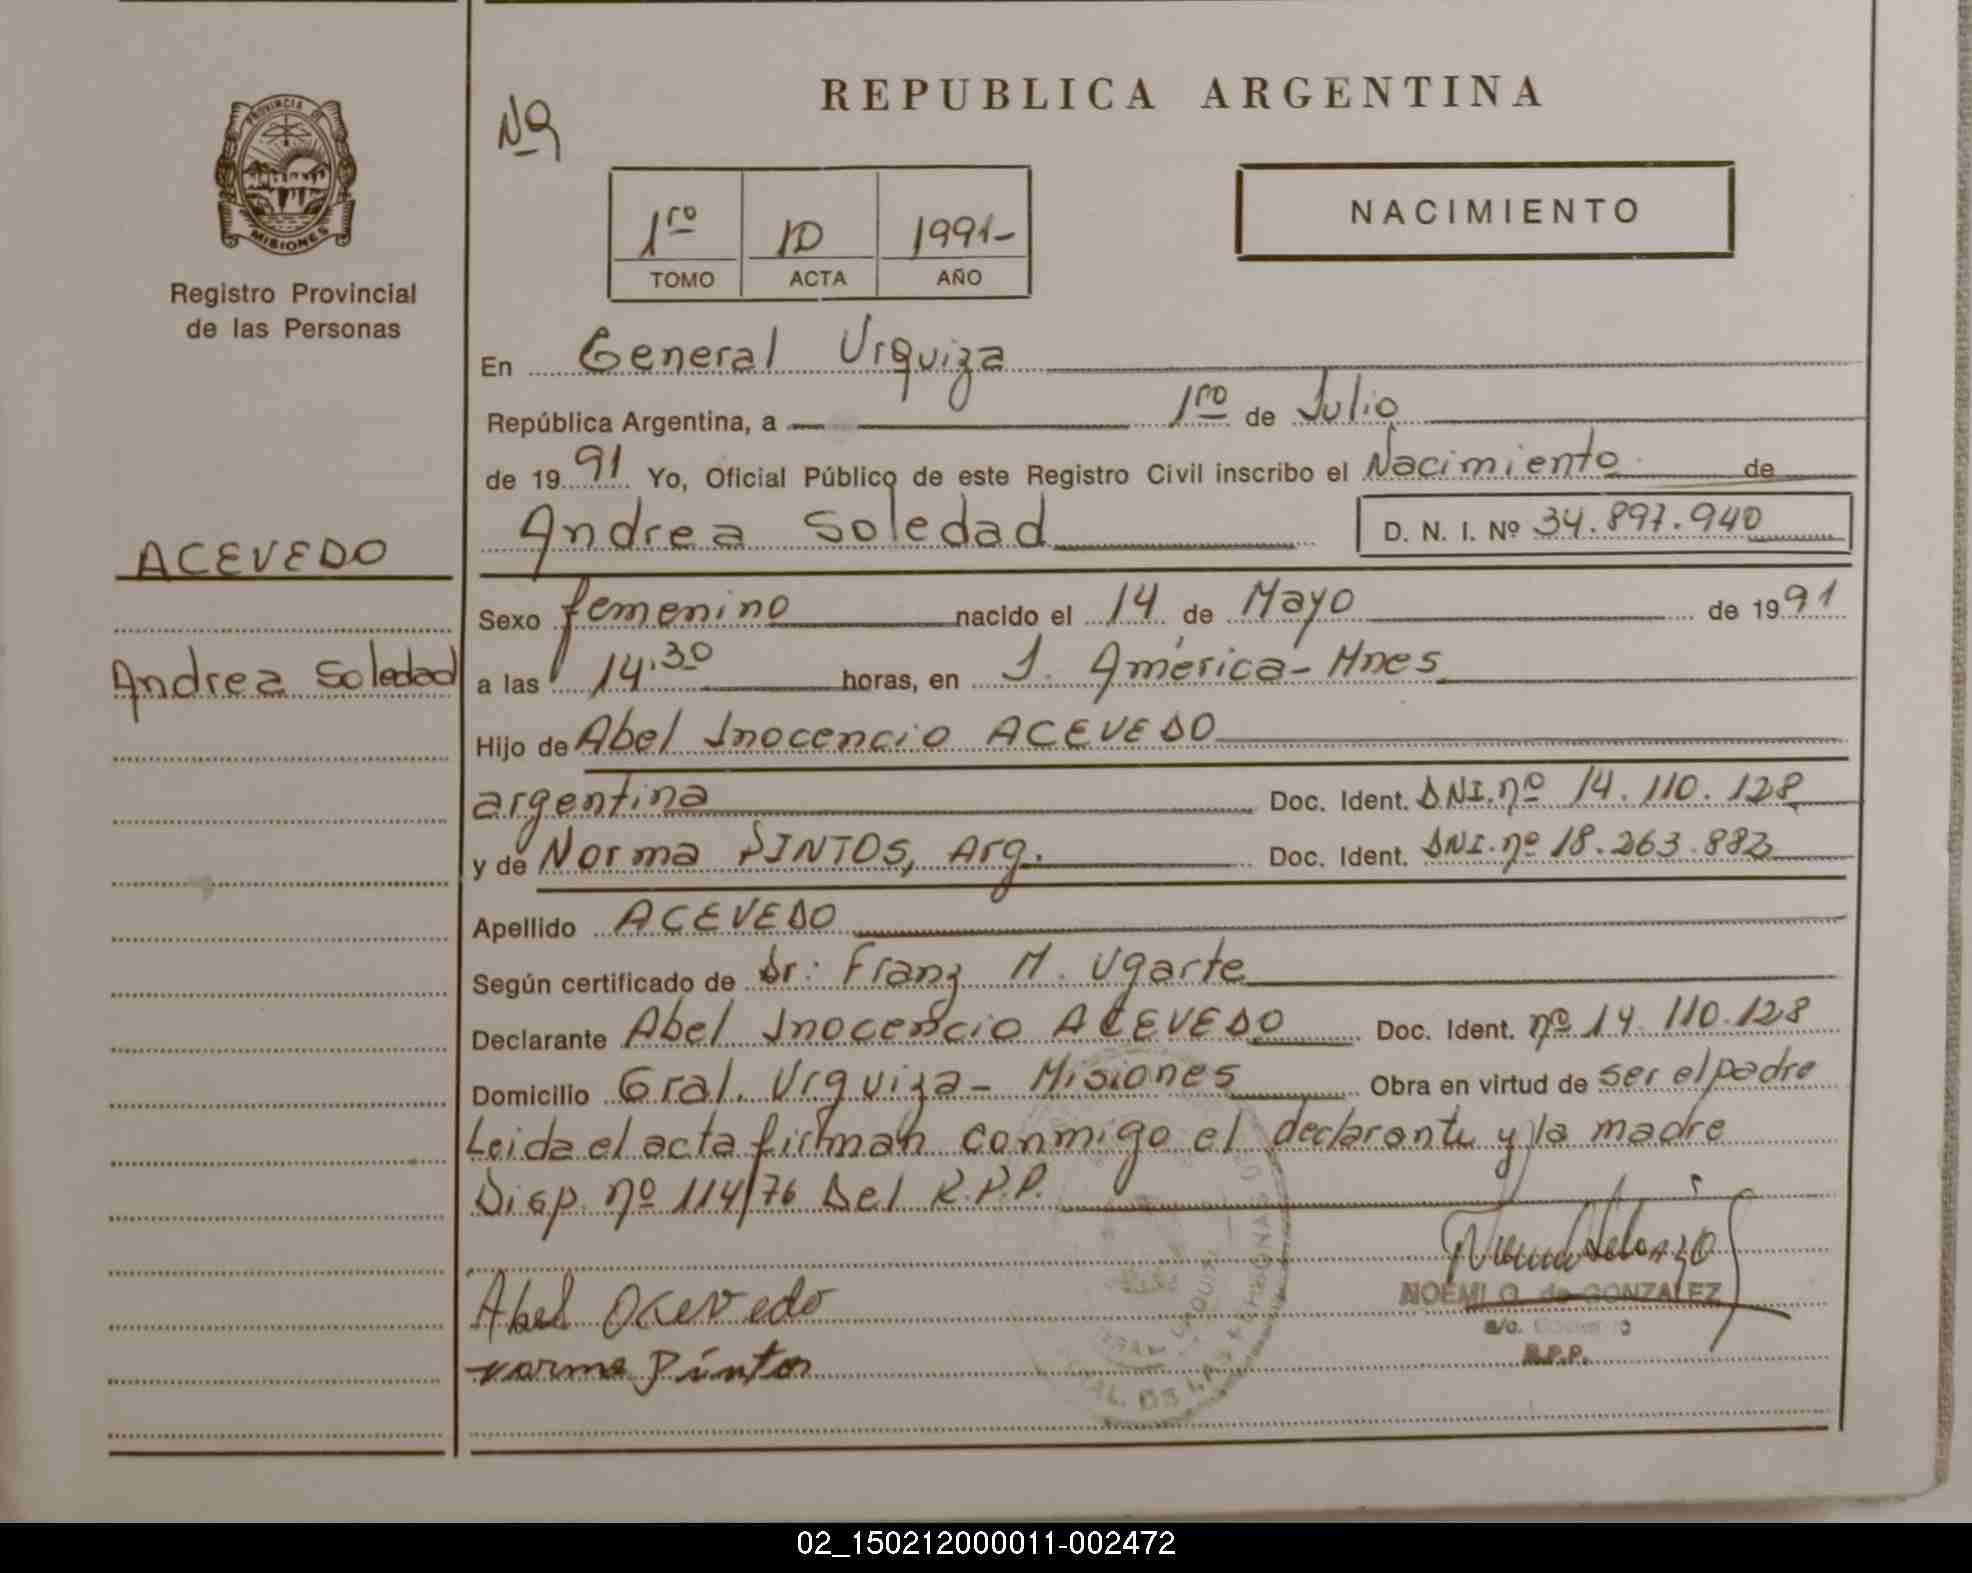 REPUBLICA ARGENTINA
Nº
PROVINCIA DE
MISIONES
Registro Provincial
de las Personas
1ro 10 1991-
TOMO ACTA AÑO
NACIMIENTO
En General Urquiza
República Argentina, a 1ro de Julio
de 1991 Yo, Oficial Público de este Registro Civil inscribo el Nacimiento de
Andrea Soledad D. N. I. Nº 34.897.940
ACEVEDO
Andrea Soledad
Sexo femenino nacido el 14 de Mayo de 1991
a las 14.30 horas, en J. América - Mnes
Hijo de Abel Inocencio ACEVEDO
argentina Doc. Ident. DNI. nº 14.110.128
y de Norma PINTOS, Arg. Doc. Ident. DNI. nº 18.263.882
Apellido ACEVEDO
Según certificado de Dr: Franz M. Ugarte
Declarante Abel Inocencio ACEVEDO Doc. Ident. nº 14.110.128
Domicilio Gral. Urquiza - Misiones Obra en virtud de ser el padre
Leida el acta firman conmigo el declarante y la madre
Disp. nº 114/76 Del R.P.P.
Abel Acevedo
NOEMI O. de GONZALEZ
a/c.
R.P.P.
norma Pintos
02_150212000011-002472